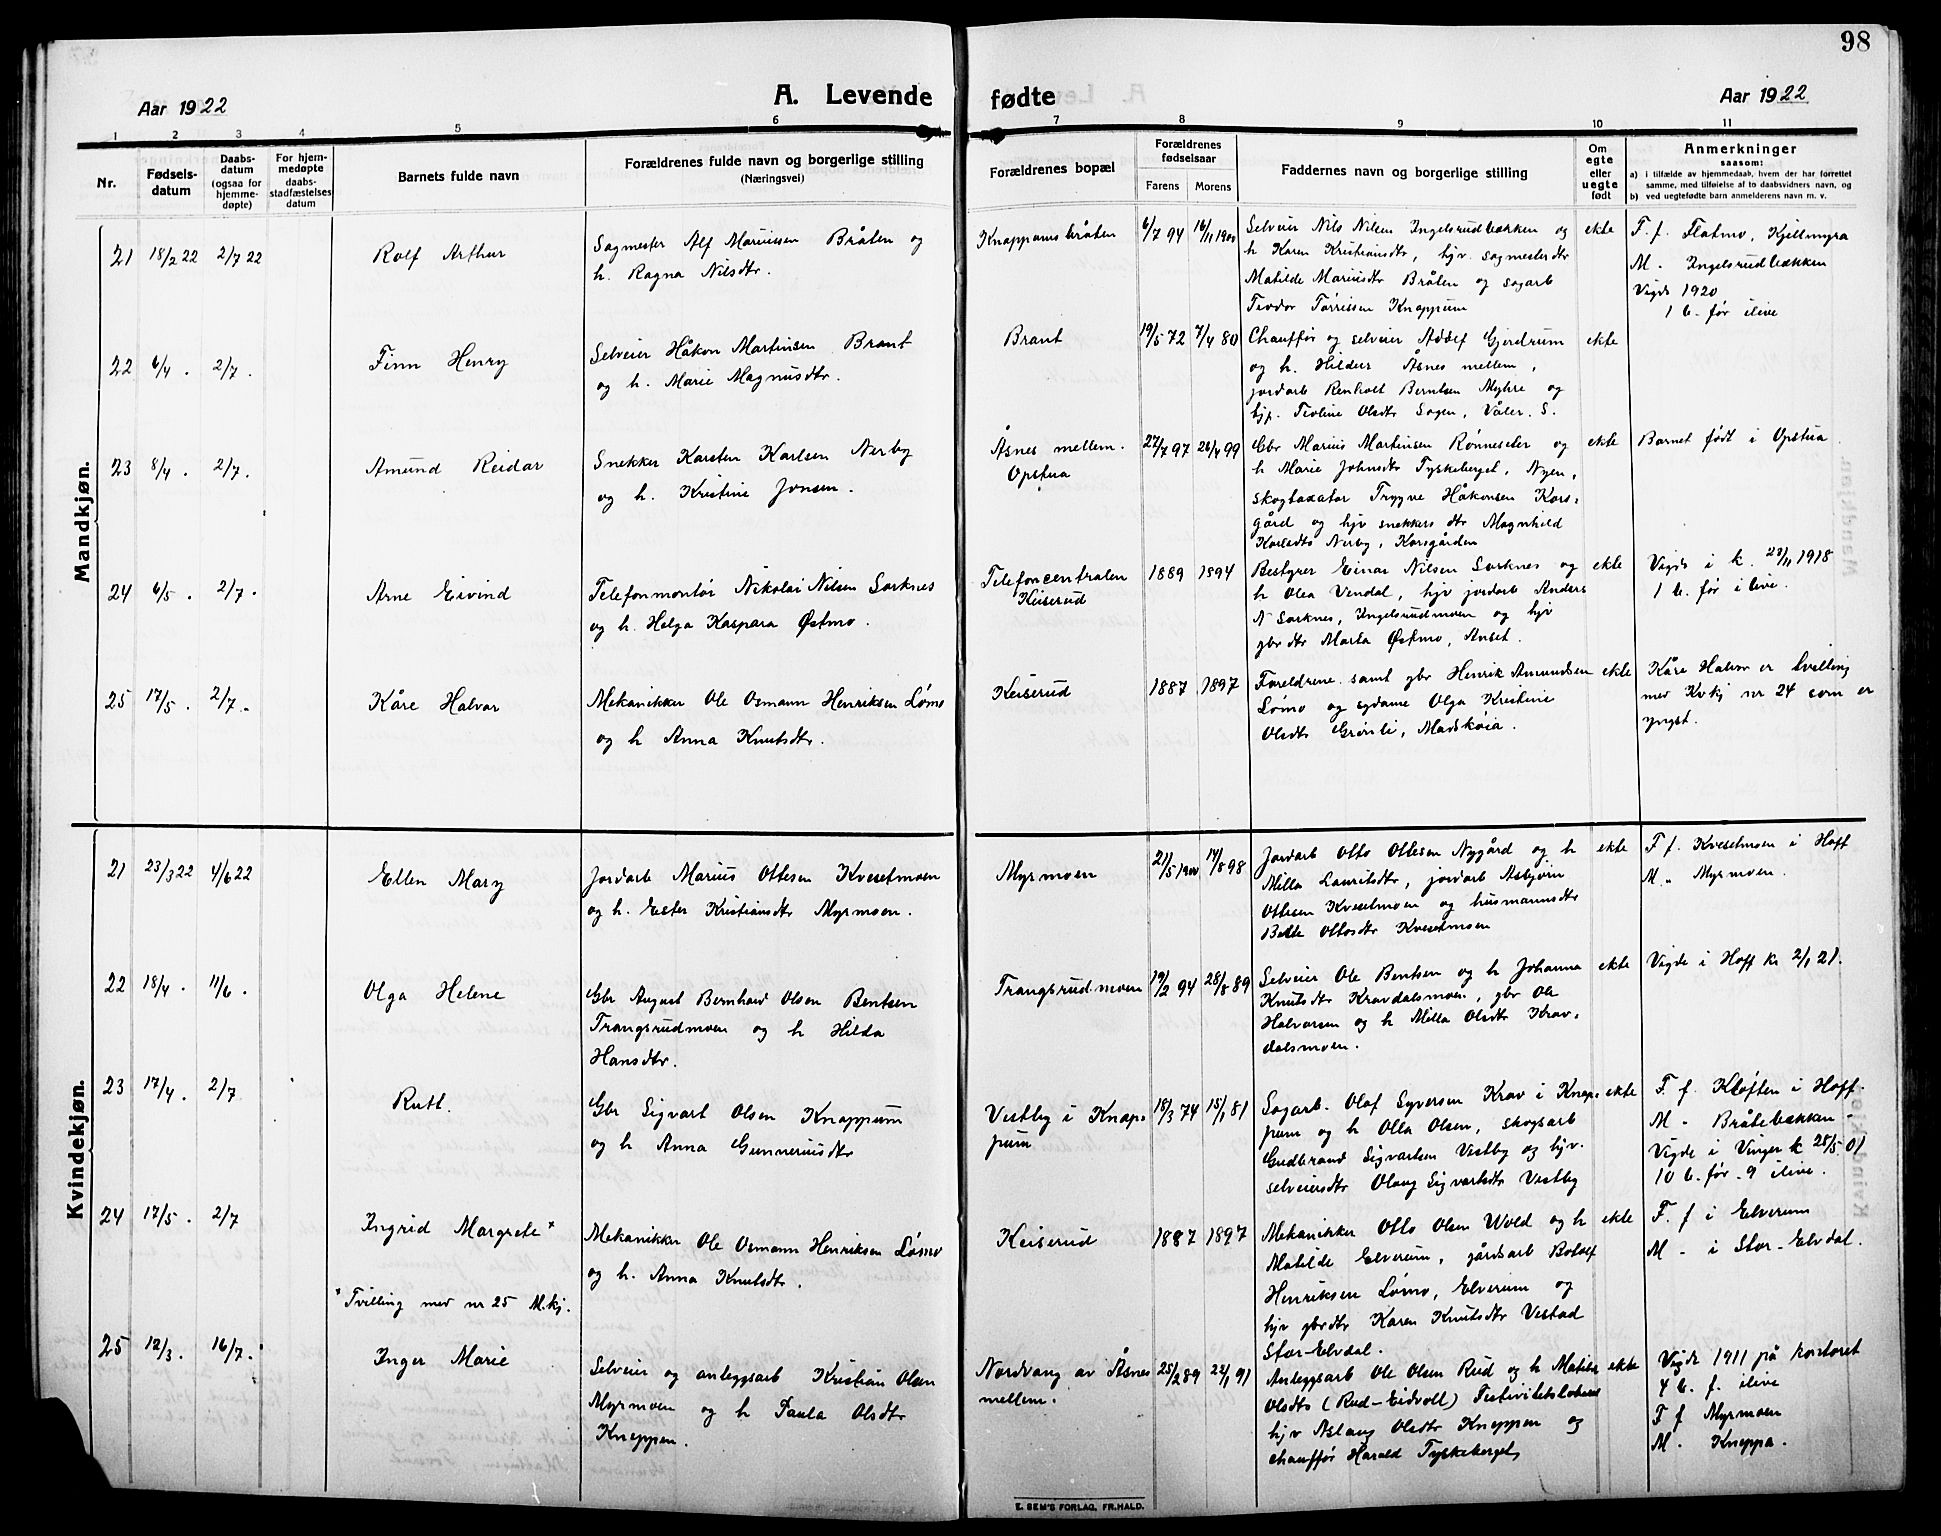 98
Aar 1922
A. Levende
fødte
Aar 1922
1 2 3 4 5 6 7 8 9 10 11
Nr.
Fødsels-
datum
Daabs-
datum
(ogsaa for
hjemme-
døpte)
For hjem-
medøpte
daabs-
stadfæstelses
datum
Barnets fulde navn
Forældrenes fulde navn og borgerlige stilling
(Næringsvei)
Forældrenes bopæl
Forældrenes
fødselsaar
Farens Morens
Faddernes navn og borgerlige stilling
Om
egte
eller
uegte
født
Anmerkninger
saasom:
a) i tilfælde av hjemmedaab, hvem der har forrettet
samme, med tilføielse af to daabsvidners navn, og
b) ved uegtefødte barn anmelderens navn m. v.
Mandkjøn.
21 18/2 22 2/7 22
Rolf Arthur
Sagmester Alf Mariussen Bråten og
h. Ragna Nilsdtr.
Knappumsbråten
6/7 94 16/11 1900
Selveier Nils Nilsen Ingelsrudbækken og
h Karen Kristiansdtr, hjv. sagmesterdtr
Matilde Mariusdtr Bråten og sagarb
Teodor Tørrissen Knappum
ekte
F. f. Flatmo, Kjellmyra
M. - Ingelsrudbækken
Vigde 1920
1 b. før ilive
22 6/4 . 2/7 .
Finn Henry
Selveier Håkon Martinsen Brant
og h. Marie Magnusdtr.
Brant
19/5 72 7/4 80
Chauffør og selveier Adolf Gjerdrum
og h. Hildur Åsnes mellem,
jordarb Renholt Berntsen Myhre og
hjp. Teoline Olsdtr Sagen, Våler. S.
ekte
23 8/4 . 2/7 .
Amund Reidar
Snekker Karsten Karlsen Nerby
og h. Kristine Jonsen.
Åsnes mellem.
Opstua
27/7 97 26/4 99
Gbr Marius Martinsen Rønneseter og
h Marie Johnsdtr Tyskeberget, Nyen,
skogtaxator Trygve Håkonsen Kors-
gård og hjv snekkers dtr Magnhild
Karlsdtr Nerby, Korsgården
ekte
Barnet født i Opstua
24 6/5 . 2/7 .
Arne Eivind
Telefonmontør Nikolai Nilsen Sorknes
og h. Helga Kaspara Østmo.
Telefoncentralen
Keiserud
1889 1894
Bestyrer Einar Nilsen Sorknes og
h Olea Vendal, hjv jordarb Anders
N Sorknes, Ingelsrudmoen og hjv
gbr dtr Marta Østmo, Anset.
ekte
Vigde i k. 23/11 1918
1 b. før i live.
25 17/5 . 2/7 .
Kåre Halvar
Mekanikker Ole Osmann Henriksen Lømo
og h Anna Knutsdtr.
Keiserud
1887 1897
Foreldrene samt gbr Henrik Amundsen
Lømo og sydame Olga Kristine
Olsdtr Grønli, Madskøia.
ekte
Kåre Halvar er tvilling
med Kvkj nr 24 som er
yngst.
Kvindekjøn.
21 23/3 22 4/6 22
Ellen Mary
Jordarb Marius Ottesen Kvesetmoen
og h. Ester Kristiansdtr Myrmoen.
Myrmoen
21/5 1900 14/8 98
Jordarb Otto Ottesen Nygård og h
Milla Lauritsdtr, jordarb Asbjørn
Ottesen Kvesetmoen og husmannsdtr
Betle Ottosdtr Kvesetmoen
ekte
F f. Kvesetmoen i Hoff
M. „ Myrmoen.
22 18/4 . 11/6 .
Olga Helene
Gbr August Bernhard Olsen Bentsen
Trangsrudmoen og h Hilda
Hansdtr.
Trangsrudmoen
19/2 94 28/8 89
Selveier Ole Bentsen og h Johanna
Knutsdtr Kravdalsmoen, gbr Ole
Halvorsen og h Milla Olsdtr Krav-
dalsmoen.
ekte
Vigde i Hoff kr 2/1 21.
23 17/4 . 2/7
Rutt.
Gbr Sigvart Olsen Knappum
og h Anna Gunneriusdtr
Vestby i Knap-
pum
18/3 74 15/1 81
Sagarb. Olaf Syversen Krav i Knap-
pum og h Olla Olsen, skogsarb
Gudbrand Sigvartsen Vestby og hjv.
selveiersdtr Olaug Sigvartsdtr Vestby
ekte
F. f. Kløften i Hoff
M - Bråtebækken
Vigde i Vinger k 25/5 01
10 b. før . 9 ilive.
24 17/5 . 2/7
Ingrid Margrete x
Mekanikker Ole Osmann Henriksen Lømo
og h. Anna Knutsdtr.
x Tvilling med nr 25 M.kj.
Keiserud
1887 1897
Mekanikker Otto Olsen Wold og h
Matilde Elverum, gårdsarb Botolf
Henriksen Lømo, Elverum og
hjv gbrdtr Karen Knutsdtr Vestad
Stor-Elvdal.
ekte
F. f i Elverum
M - i Stor-Elvdal.
25 12/3 . 16/7 .
Inger Marie
Selveier og anleggsarb Kristian Olsen
Myrmoen og h Paula Olsdtr
Kneppen.
Nordvang av Åsnes
mellem.
25/2 89 22/1 91
Anleggsarb Ole Olsen Rud og h Matilde
Olsdtr (Rud-Eidvoll) Festivitetslokalet
hjv Aslaug Olsdtr Kneppen og
chauffør Harald Tyskeberget,
ekte
Vigde 1911 på kontoret
4 b. f. ilive
F f Myrmoen
M. Kneppa.
E. SEM'S FORLAG, FR.HALD.